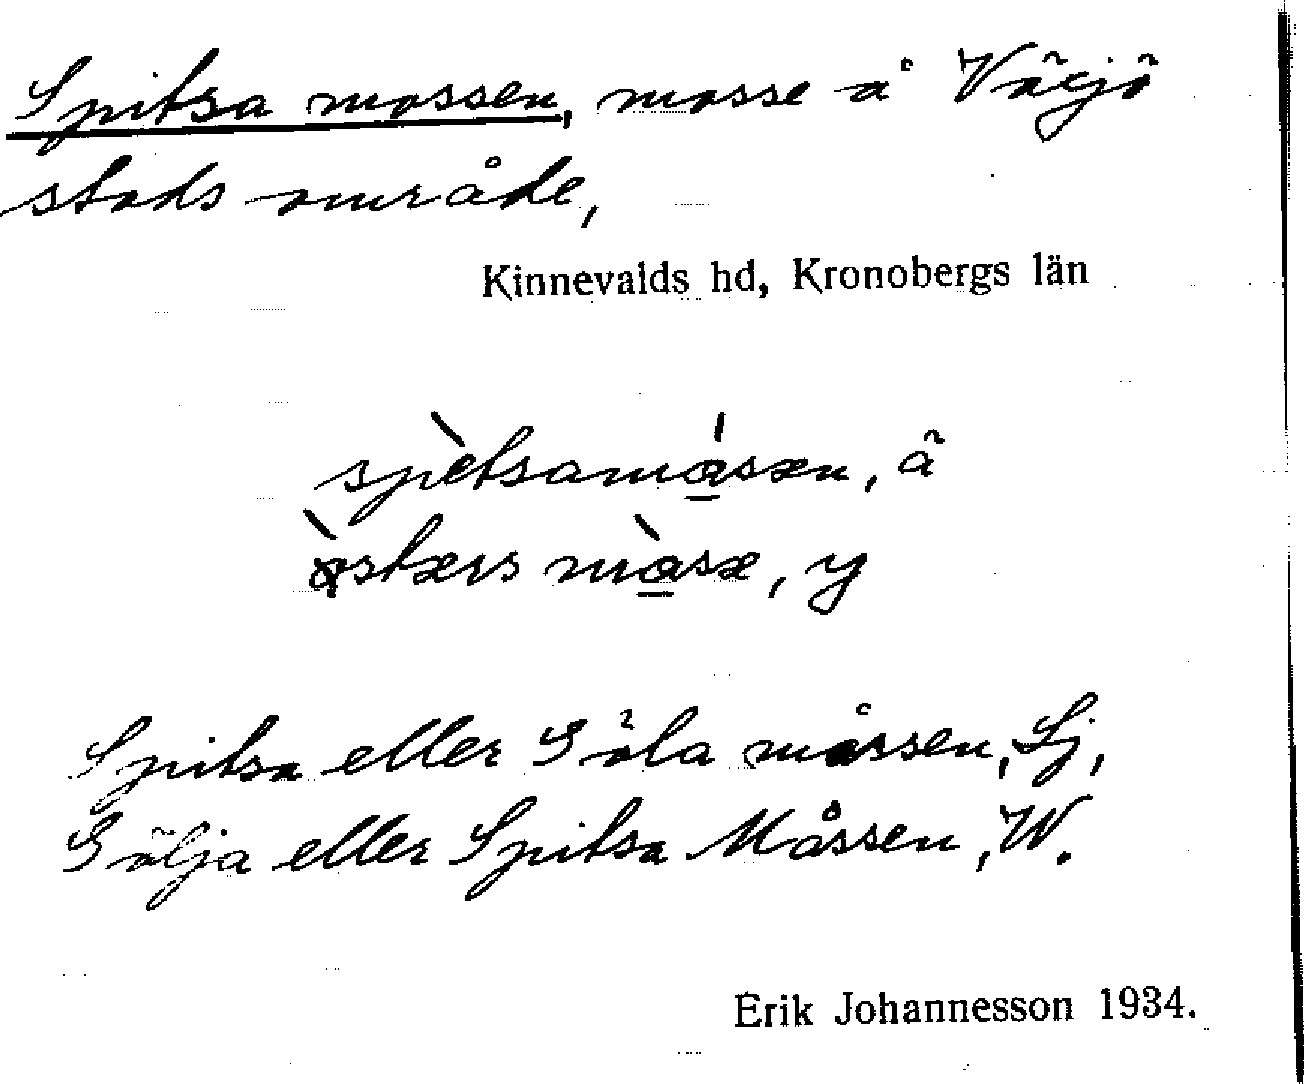 Spitsa mossen, mosse å Växjö
stads område,
Kinnevalds hd, Kronobergs län
spètsamåsæn, ä
østærs måsæ, y
Spitsa eller Göla måssen, Lj,
Gölja eller Spitsa Måssen, W.
Erik Johannesson 1934.